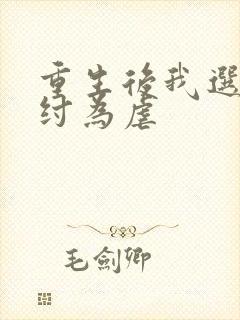 重生後我選
紂為虐
毛劍卿